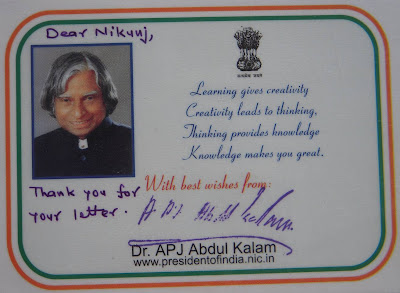 Dear Nikunj,
Learning gives creativity
Creativity leads to thinking,
Thinking provides knowledge
Knowledge makes you great.
With best wishes from:
Thank you for
your letter.
Dr. APJ Abdul Kalam
www.presidentofindia.nic.in